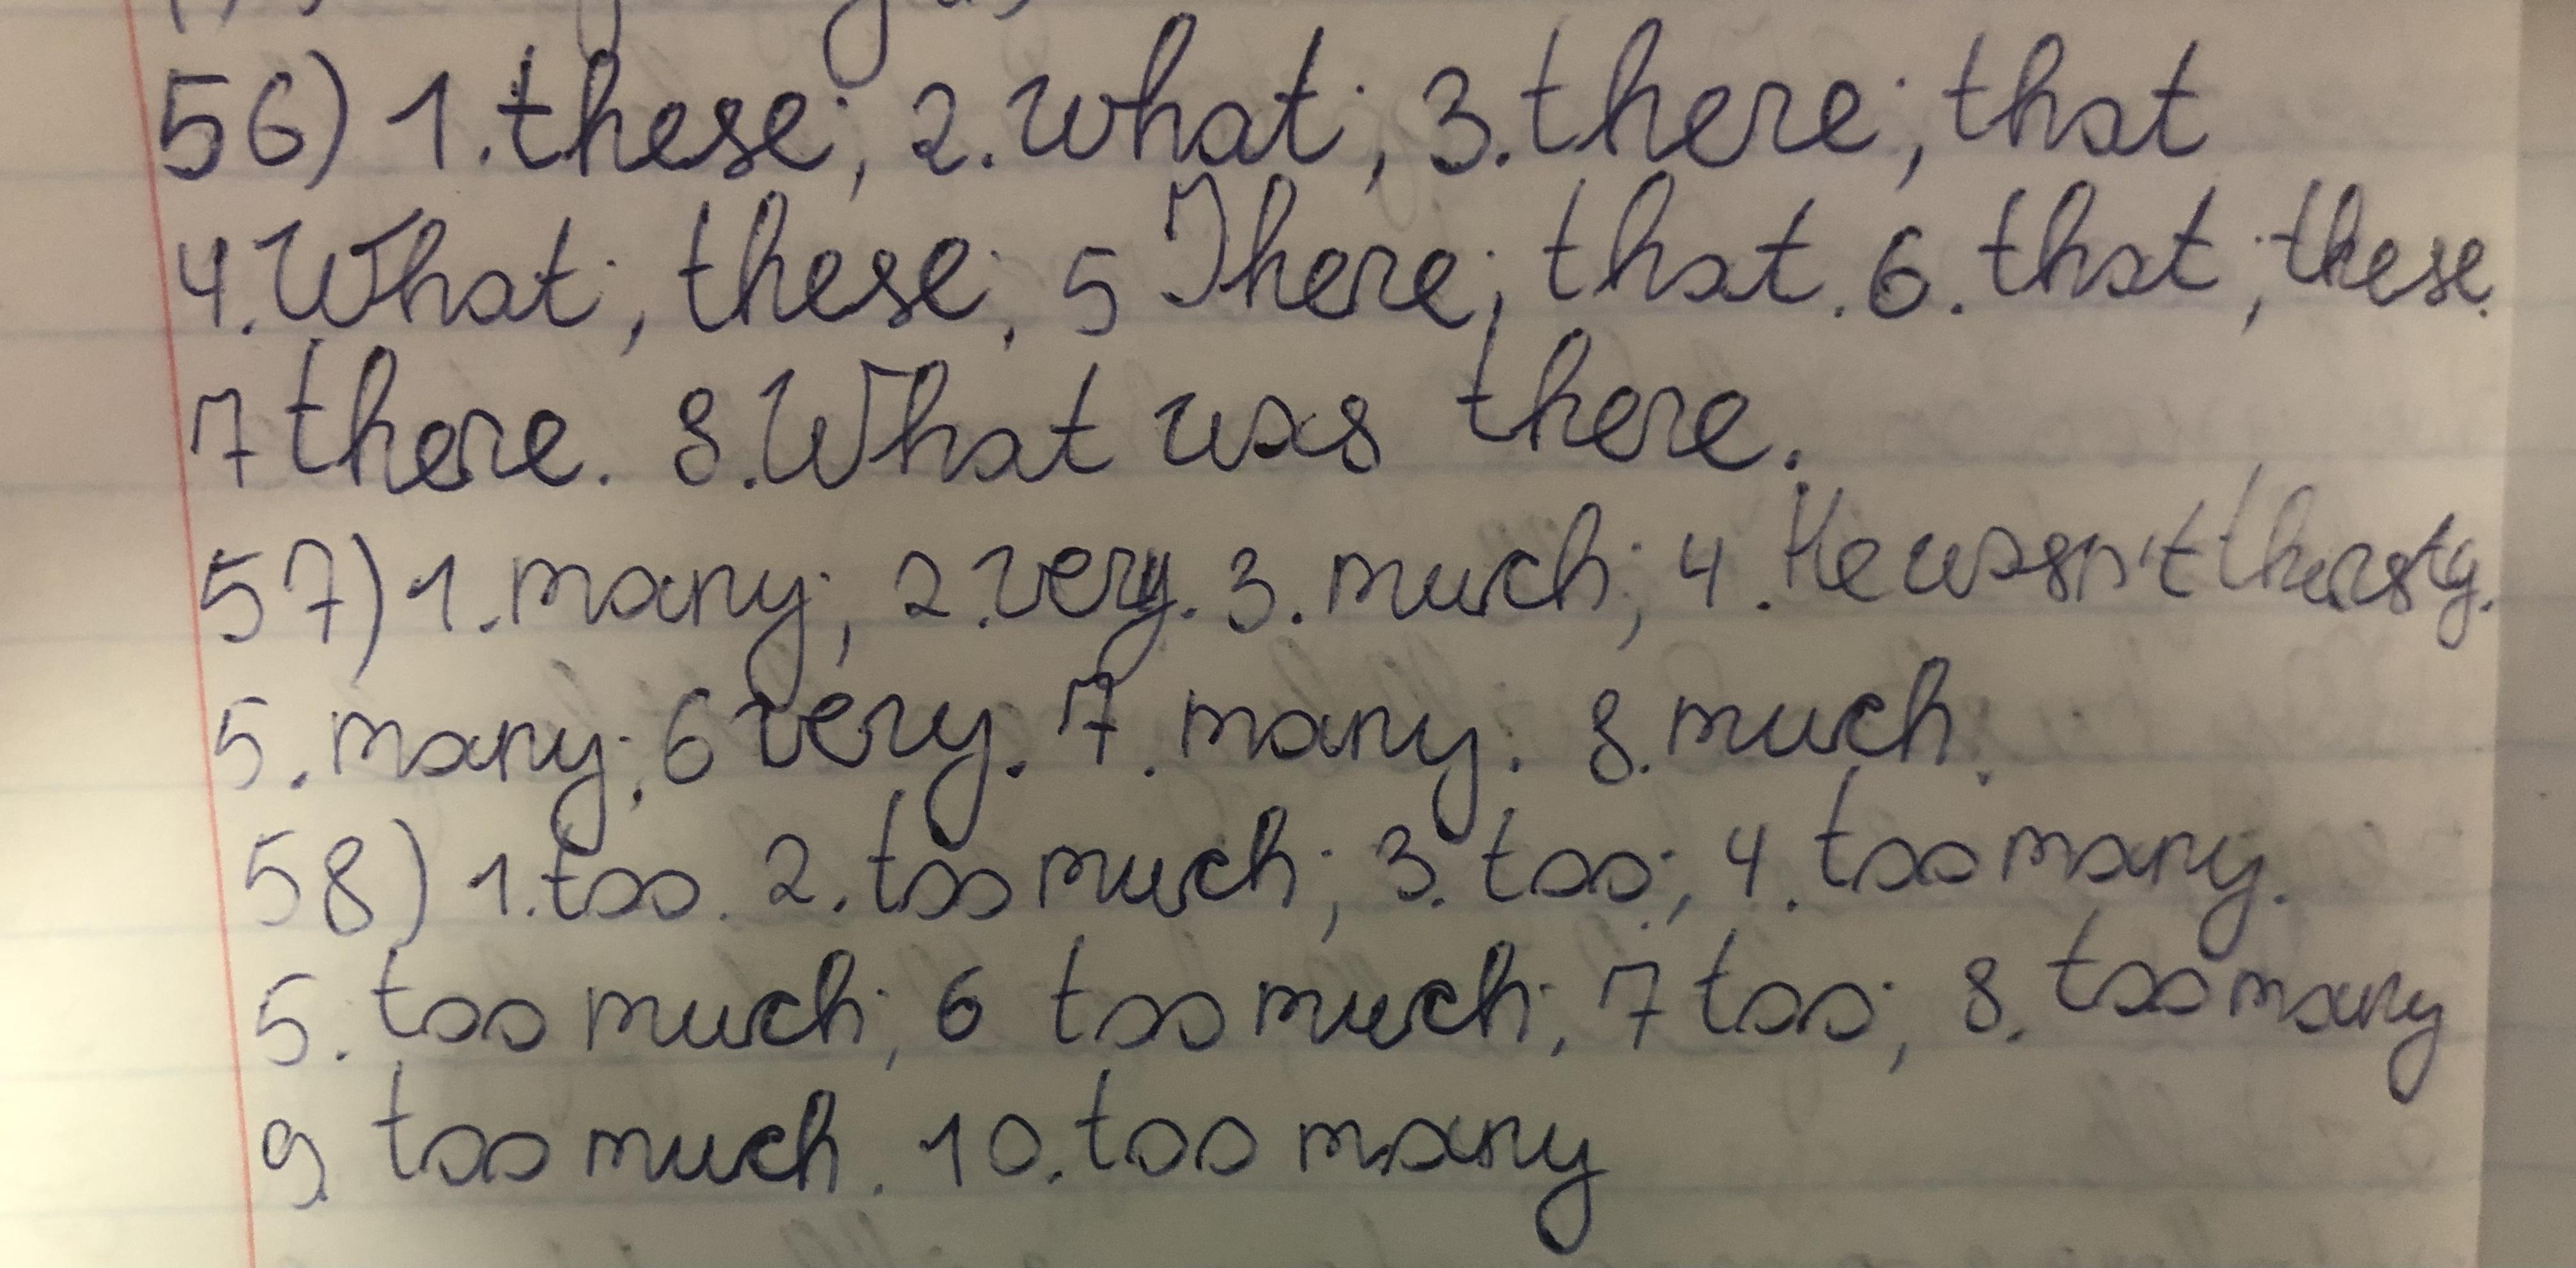 56) 1. these; 2. what; 3. there; that
4. What; these; 5 There; that. 6. that; these.
7 there. 8. What was there.
57) 1. many; 2. very. 3. much; 4. He wasn't thirsty.
5. many; 6 very. 7. many. 8. much.
58) 1. too. 2. too much; 3. too; 4. too many.
5. too much; 6 too much; 7 too; 8. too many
9 too much. 10. too many